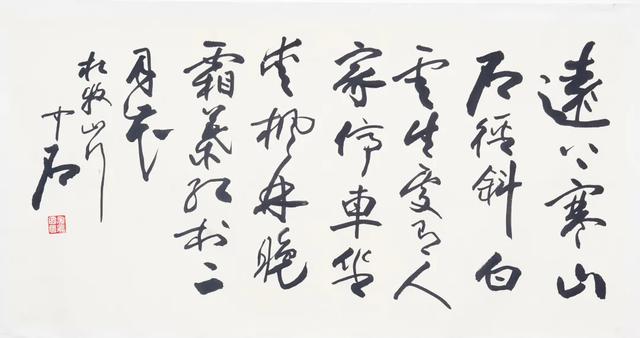 遠上寒山
石徑斜白
雲生處有人
家停車坐
愛楓林晚
霜葉紅於二
月花
杜牧山行
中石